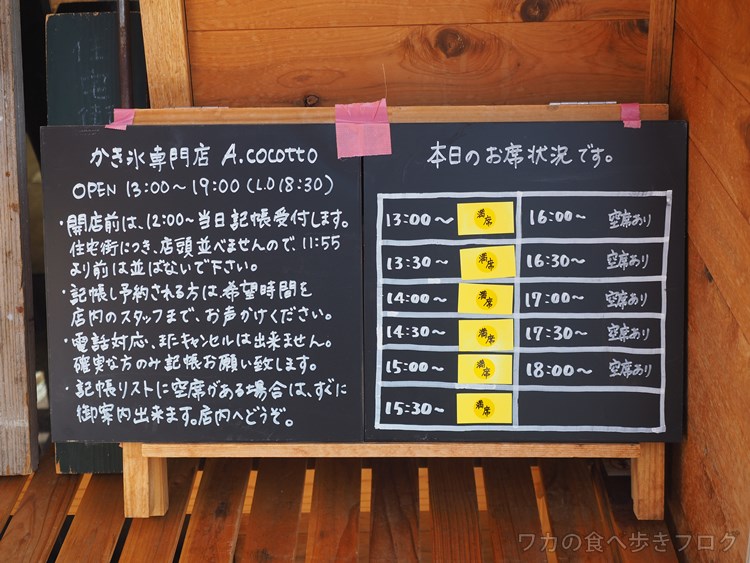 かき氷専門店 A.cocotto
OPEN 13:00～19:00(L.O 18:30)
・開店前は、12:00～当日記帳受付します。
住宅街につき、店頭並べませんので 11:55
より前は並ばないで下さい。
・記帳し予約される方は、希望時間を
店内のスタッフまで、お声かけください。
・電話対応、またキャンセルは出来ません。
確実な方のみ記帳お願い致します。
・記帳リストに空席がある場合は、すぐに
御案内出来ます。店内へどうぞ。
本日のお席状況です。
13:00～ 満席 16:00～ 空席あり
13:30～ 満席 16:30～ 空席あり
14:00～ 満席 17:00～ 空席あり
14:30～ 満席 17:30～ 空席あり
15:00～ 満席 18:00～ 空席あり
15:30～ 満席
住宅街
ワカの食べ歩きブログ